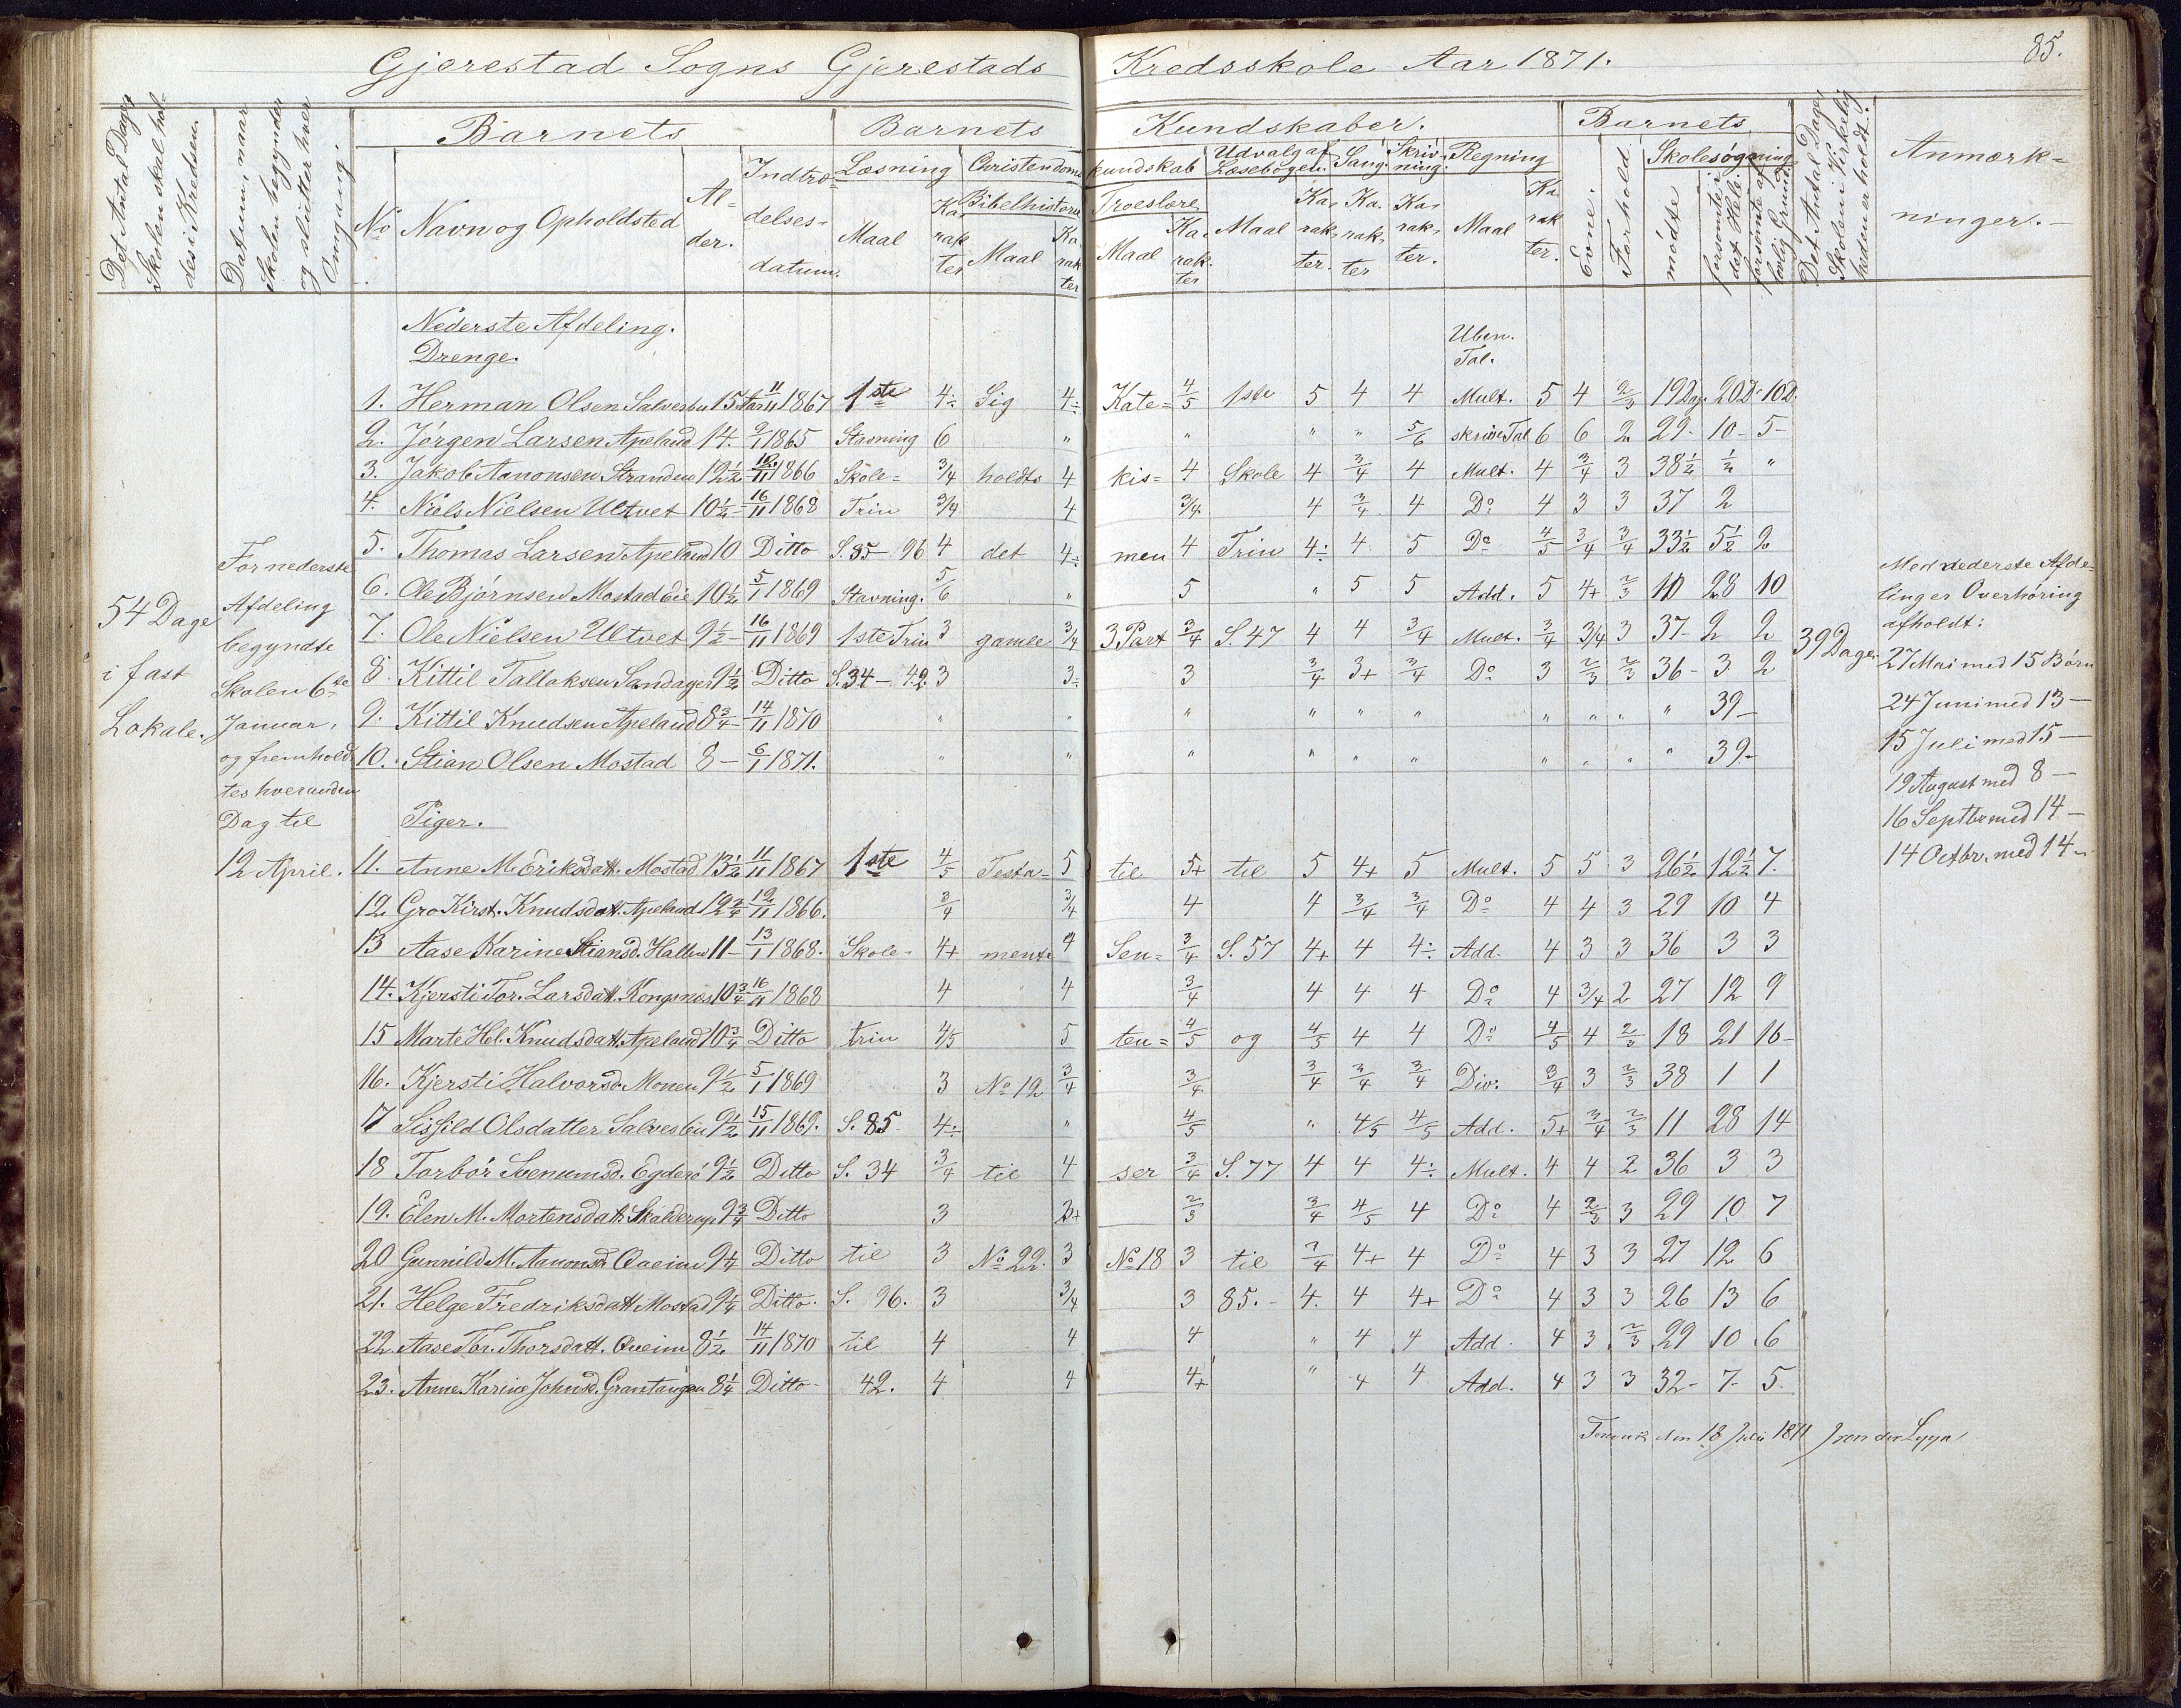 Gjerestad Sogns Gjerestads Kredsskole Aar 1871. 85.
Det Antal Dage Skolen skal holdes i Kredsen.
Datum, naar Skolen begynder og slutter hver Omgang.
Barnets
No Navn og Opholdsted Alder. Indtrædelsesdatum.
Barnets Kundskaber.
Læsning Maal Karakter
Christendomskundskab Bibelhistorie Maal Karakter Troeslære Maal Karakter
Udvalg af Læsebogen. Maal Karakter.
Sang. Karakter
Skrivning. Karakter.
Regning Maal Karakter.
Barnets
Evne. Forhold
Skolesøgning mødte forsømte det Hele. forsømte af lovlig Grund
Det Antal Dage, Skolen i Virkeligheden er holdt.
Anmærkninger.
Nederste Afdeling.
Drenge. Uben. Tal.
1. Herman Olsen Salvesbu 15 Aar 11/11 1867 1ste 4÷ Sig 4÷ Kate= 4/5 1ste 5 4 4 Mult. 5 4 2/3 19 Dage 20 D. 10 D.
2. Jørgen Larsen Apeland 14. 9/1 1865 Stavning 6 " " " " 5/6 skrive Tal 6 6 2 29- 10- 5-
3. Jakob Aanonsen Stranden 12 1/2 12/11 1866 Skole= 3/4 holdts 4 kis= 4 Skole 4 3/4 4 Mult. 4 3/4 3 38 1/2 1/2 "
4. Niels Nielsen Ultvet 10 1/2 16/11 1868 Trin 3/4 4 3/4 4 3/4 4 Do 4 3 3 37 2
5. Thomas Larsen Apeland 10 Ditto S. 85-96 4 det 4÷ men 4 Trin 4÷ 4 5 Do 4/5 3/4 3/4 33 1/2 5 1/2 2
6. Ole Bjørnsen Mostadeie 10 1/2 5/1 1869 Stavning. 5/6 " 5 " 5 5 Add. 5 4+ 2/3 10 28 10
7. Ole Nielsen Ultvet 9 1/2 - 16/11 1869 1ste Trin 3 gamle 3/4 3 Part 3/4 S. 47 4 4 3/4 Mult. 3/4 3/4 3 37- 2 2
8. Kittil Tallaksen Sandager 9 1/2 Ditto S. 34-42. 3 3÷ 3 3/4 3+ 3/4 Do 3 2/3 2/3 36- 3 2
9. Kittil Knudsen Apeland 8 3/4 - 14/11 1870 " " " " " " " " " " 39-
10. Stian Olsen Mostad 8 - 6/1 1871. " " " " " " " " " " 39-
Piger.
11. Anne M. Eriksdatt. Mostad 13 1/2 11/11 1867 1ste 4/5 Testa= 5 til 5+ til 5 4+ 5 Mult. 5 5 3 26 1/2 12 1/2 7.
12. Gro Kirst. Knudsdatt. Apeland 12 3/4 12/11 1866. 3/4 3/4 4 4 3/4 3/4 Do 4 4 3 29 10 4
13 Aase Karine Stiansd. Hallen 11 - 13/1 1868. Skole- 4+ mente 4 Sen= 3/4 S. 57 4+ 4 4÷ Add. 4 3 3 36 3 3
14. Kjersti Tor. Larsdatt. Kongsnæs 10 3/4 16/11 1868 4 4 3/4 4 4 4 Do 4 3/4 2 27 12 9
15 Marte Hel. Knudsdatt. Apeland 10 3/4 Ditto trin 4/5 5 ten= 4/5 og 4/5 4 4 Do 4/5 4 2/3 18 21 16-
16. Kjersti Halvorsd. Monen 9 1/2 5/1 1869 3 No 12 3/4 3/4 3/4 3/4 3/4 Div: 3/4 3 2/3 38 1 1
17 Sissild Olsdatter Salvesbu 9 1/2 15/11 1869. S. 85. 4÷ " 4/5 " 4/5 4/5 Add. 5+ 3/4 2/3 11 28 14
18 Torbør Svenumsd. Egderö 9 1/2 Ditto S. 34 3/4 til 4 ser 3/4 S. 77 4 4 4÷ Mult. 4 4 2 36 3 3
19. Elen M. Mortensdatt. Skalderup 9 3/4 Ditto 3 3+ 2/3 3/4 4/5 4 Do 4 2/3 3 29 10 7
20 Gunnild M. Aanonsd. Qveim 9 1/4 Ditto til 3 No 22. 3 No 18 3 til 3/4 4+ 4 Do 4 3 3 27 12 6
21. Helge Fredriksdatt. Mostad 9 1/4 Ditto. S. 96. 3 3/4 3 85.- 4. 4 4+ Do 4 3 3 26 13 6
22. Aase Tor. Thorsdatt. Qveim 8 1/2 14/11 1870 til 4 4 4 " 4 4 Add. 4 3 2/3 29 10 6
23. Anne Karine Johnsd. Grantangen 8 1/4 Ditto- 42. 4 4 4+ " 4 4 Add. 4 3 3 32- 7- 5.
54 Dage
i fast
Lokale.
For nederste
Afdeling
begyndte
Skolen 6te
Januar,
og fremhold=
tes hveranden
Dag til
12 April.
39 Dage.
Med nederste Afde=
ling er Overhøring
afholdt:
27 Mai med 15 Børn
24 Juni med 13 -
15 Juli med 15 -
19 August med 8 -
16 Septbr med 14 -
14 Octbr. med 14 -
den 18 Juli 1871